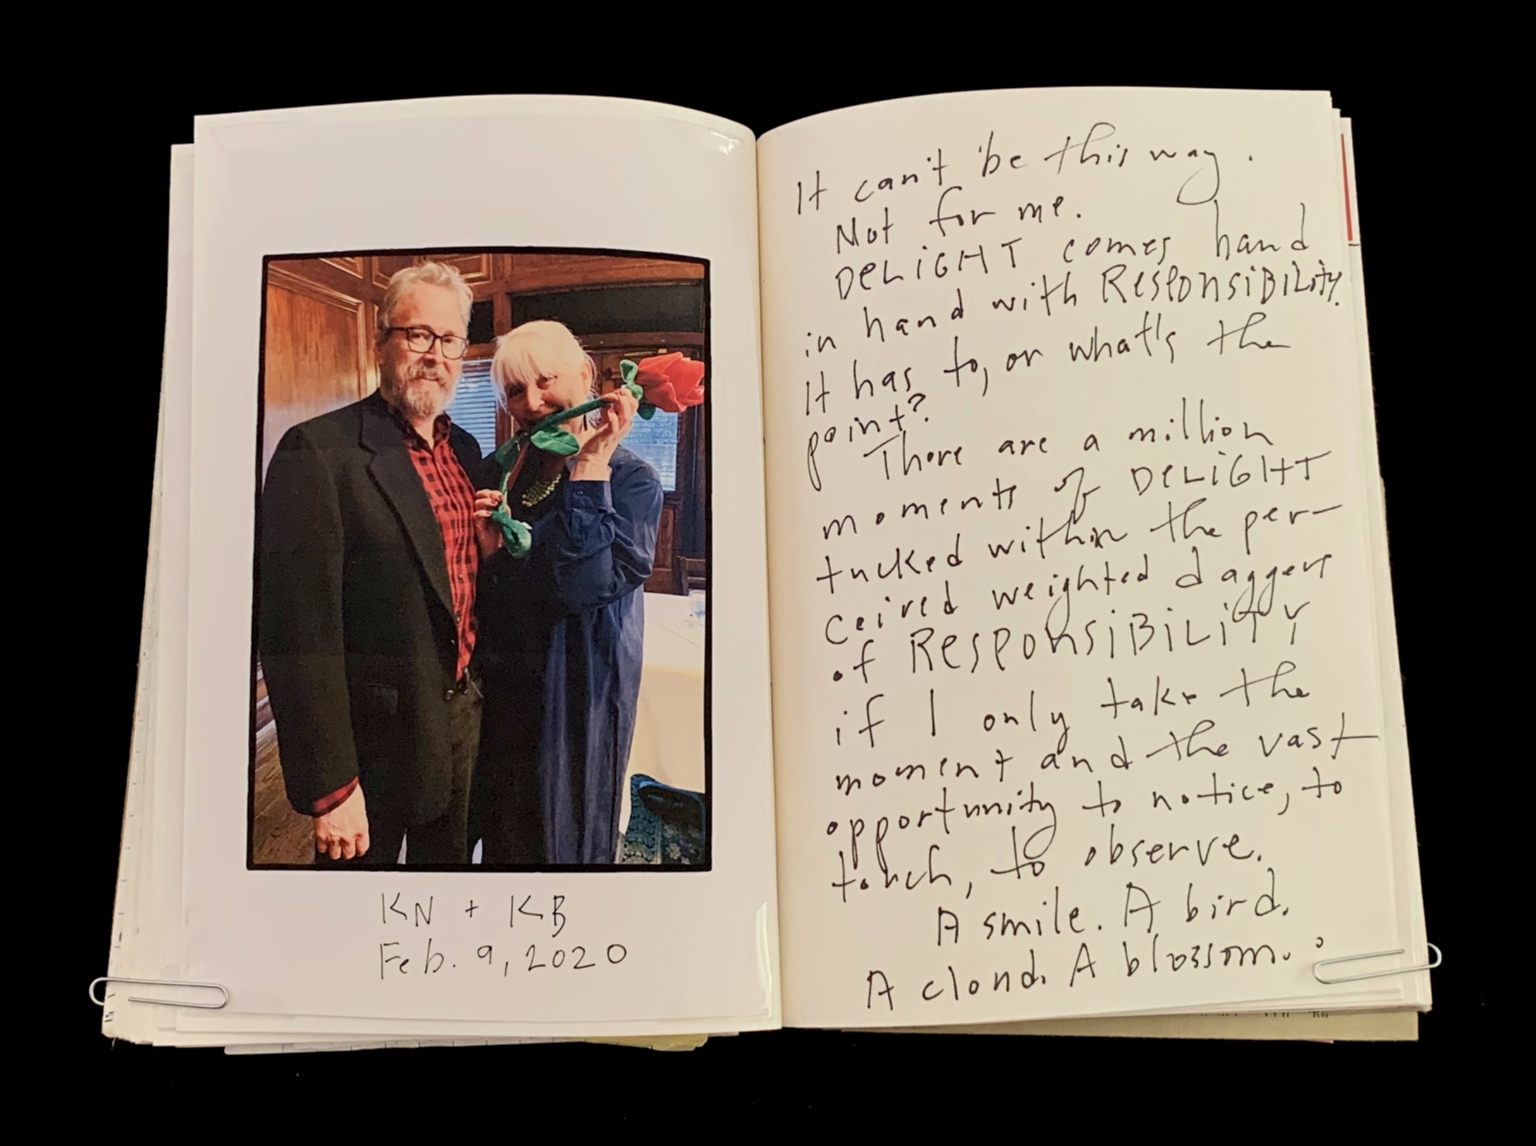 KN + KB
Feb. 9, 2020
It can't be this way.
Not for me.
DELIGHT comes hand
in hand with RESPONSIBILITY.
It has to, or what's the
point?
There are a million
moments of DELIGHT
tucked within the per-
ceived weighted daggers
of RESPONSIBILITY
if I only take the
moment and the vast
opportunity to notice, to
touch, to observe.
A smile. A bird.
A cloud. A blossom.